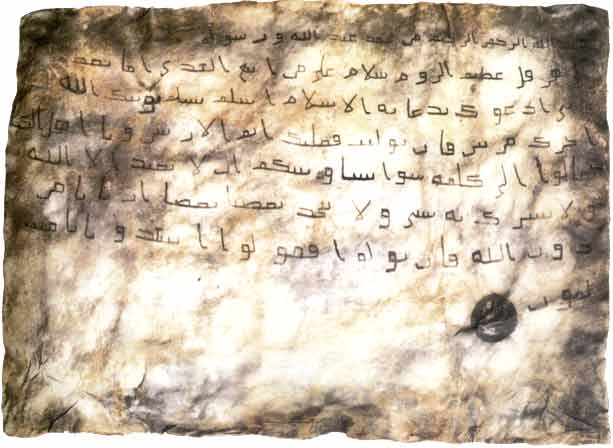 الله الرحمن الرحيم من محمد عبد الله ورسوله
هرقل عظيم الروم سلام على من اتبع الهدى اما بعد
ادعوك بدعاية الاسلام اسلم تسلم يوتك الله
اجرك مرتين فان توليت فعليك اثم الاريسين ويا اهل الكتاب
تعالوا الى كلمة سوا بيننا وبينكم ان لا نعبد الا الله
ولا نشرك به شيا ولا يتخذ بعضنا بعضا اربابا من
دون الله فان تولوا فقولوا اشهدوا بانا مس
لمون